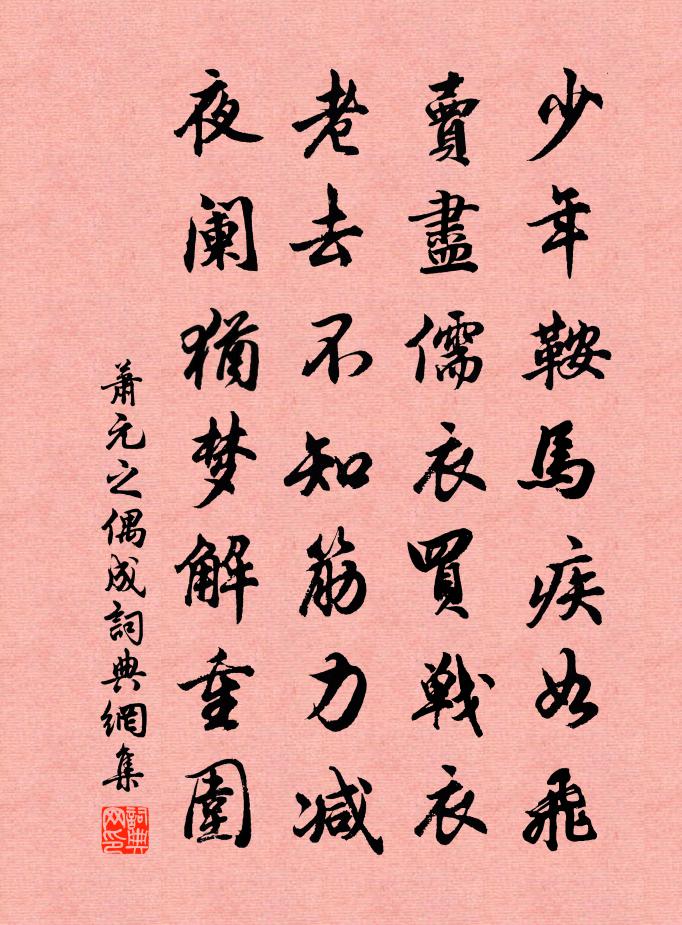 少年鞍馬疾如飛
賣盡儒衣買戦衣
老去不知筋力减
夜阑猶梦解重圍
蕭元之偶成詞典網集
詞典网印